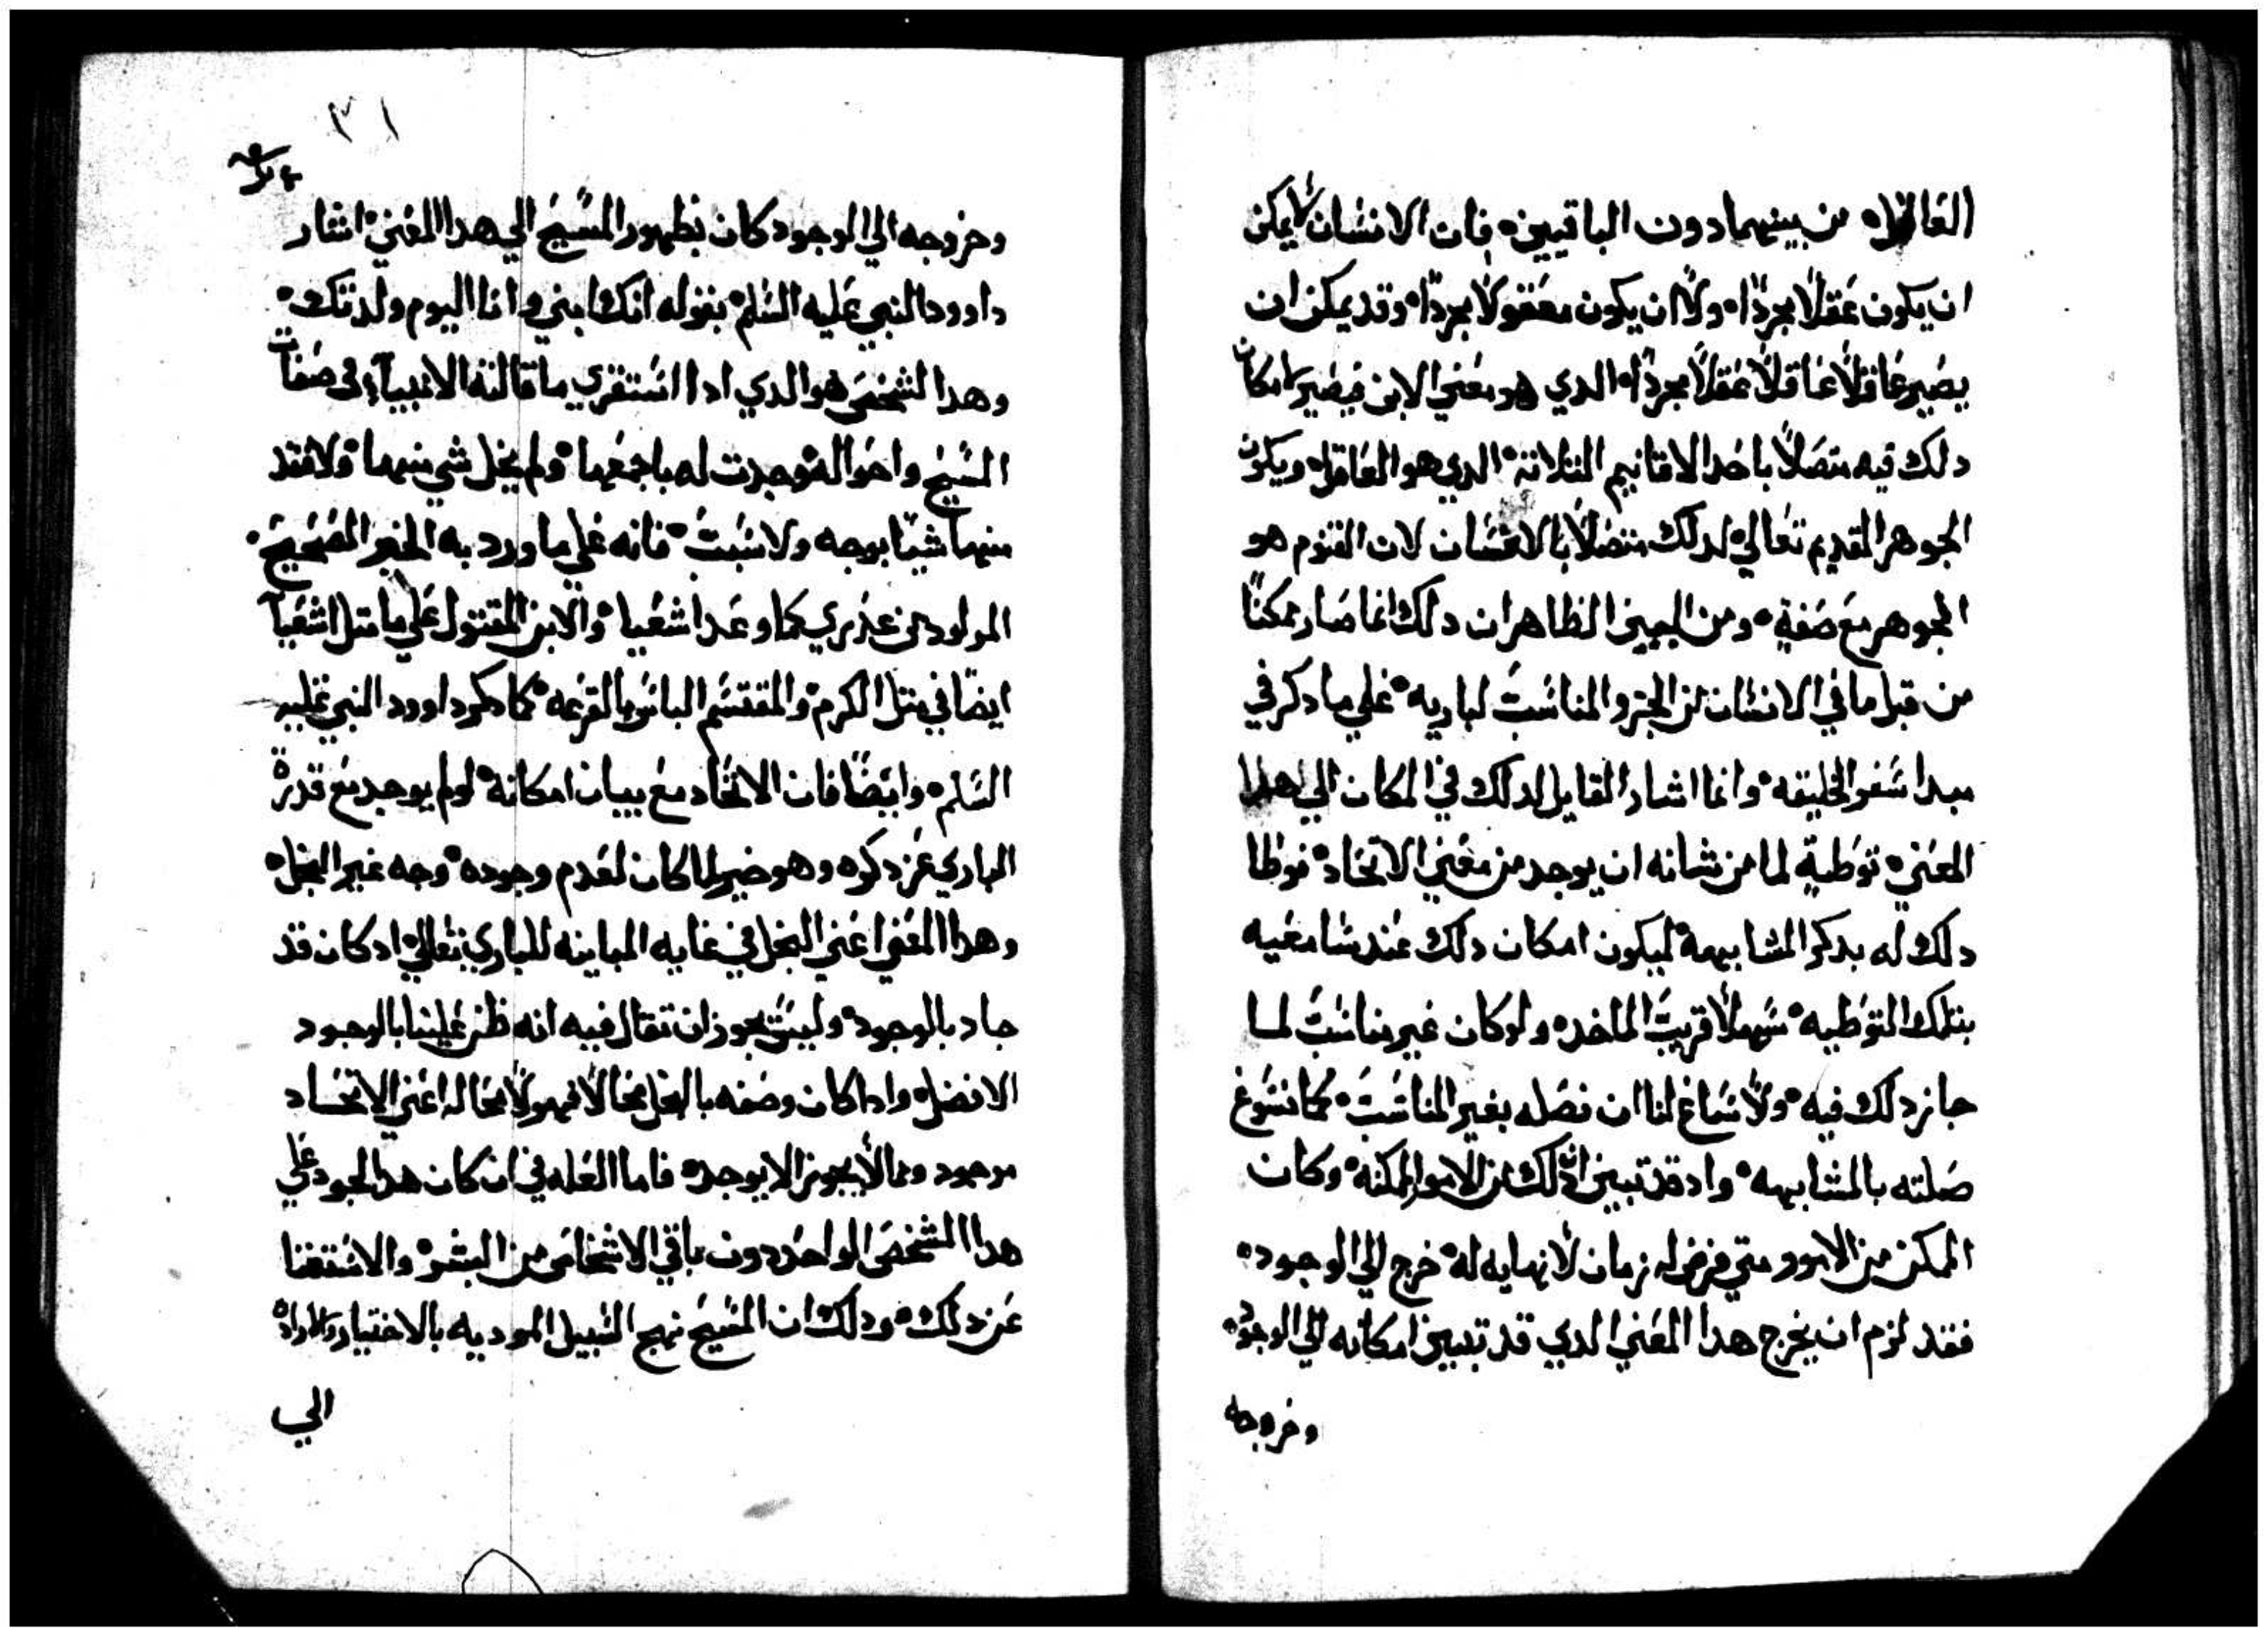 العاقل من بينهما دون الباقيين فان الانسان لا يمكن
ان يكون عقلًا مجردًا ولا ان يكون معقولًا مجردًا وقد يمكن ان
يصير عاقلًا عاقلًا عقلًا مجردًا الدي هو معني الابن فيصير امكان
دلك فيه متصلًا باحد الاقانيم الثلاثة الدي هو العاقل ويكون
الجوهر القديم تعالي لدلك متصلًا بالانسان لان القنوم هو
الجوهر مع صفةٍ ومن البين الظاهر ان دلك انما صار ممكنًا
من قبل ما في الانسان من الجزو المناسب لباريه علي ما دكر في
مبدا سفر الخليقه وانما اشار القايل لدلك في المكان الي هدا
المعني توطيةٍ لما من شانه ان يوجد من معني الاتحاد فوطا
دلك له بدكر المشابهة ليكون امكان دلك عند سامعيه
بتلك التوطيه سهلًا قريب الماخد ولو كان غير مناسب لما
جاز دلك فيه ولا ساغ لنا ان نصله بغير المناسب كما نسوغ
صلته بالمشابهه واد قد تبين ان دلك من الامور الممكنه وكان
الممكن من الامور متي فرض له زمان لا نهايه له خرج الي الوجود
فقد لزم ان يخرج هدا المعني الدي قد تبين امكانه الي الوجود
وخروجه
٣١
وخروجه الي الوجود كان بظهور المسيح الي هدا المعني اشار
داوود النبي عليه السلم بقوله انك ابني وانا اليوم ولدتك
وهدا الشخص هو الدي ادا استقري ما قالته الانبيآء في صفات
المسيح واحواله وجدت له باجمعها ولم يخل شي منهما ولا فقد
منها شيًا بوجه ولا سبب فانه علي ما ورد به الخبر الصحيح
المولود من عذري كما وعد اشعيا والابن المقتول علي ما مثل اشعيآ
ايضًا في مثل الكرم والمقتسم لباسه بالقرعه كما دكر داوود النبي عليه
السلم وايضًا فان الاتحاد مع بيان امكانه لو لم يوجد مع قدرة
الباري عز دكره وهو خير لما كان لعدم وجوده وجه غير البخل
وهدا المعني اعني البخل في غايه المباينه للباري تعالي اد كان قد
جاد بالوجود وليس يجوز ان تقال فيه انه ظن علينا بالوجود
الافضل وادا كان وصفه بالبخل محالًا فهو لا محاله اعني الاتحاد
موجود ومما لا يجوز الا يوجد فاما العله في ان كان هدا الجود علي
هدا الشخص الواحد دون باقي الاشخاص من البشر والاستغنا
عن دلك ودلك ان المسيح نهج السبيل الموديه بالاختيار والاراده
الي